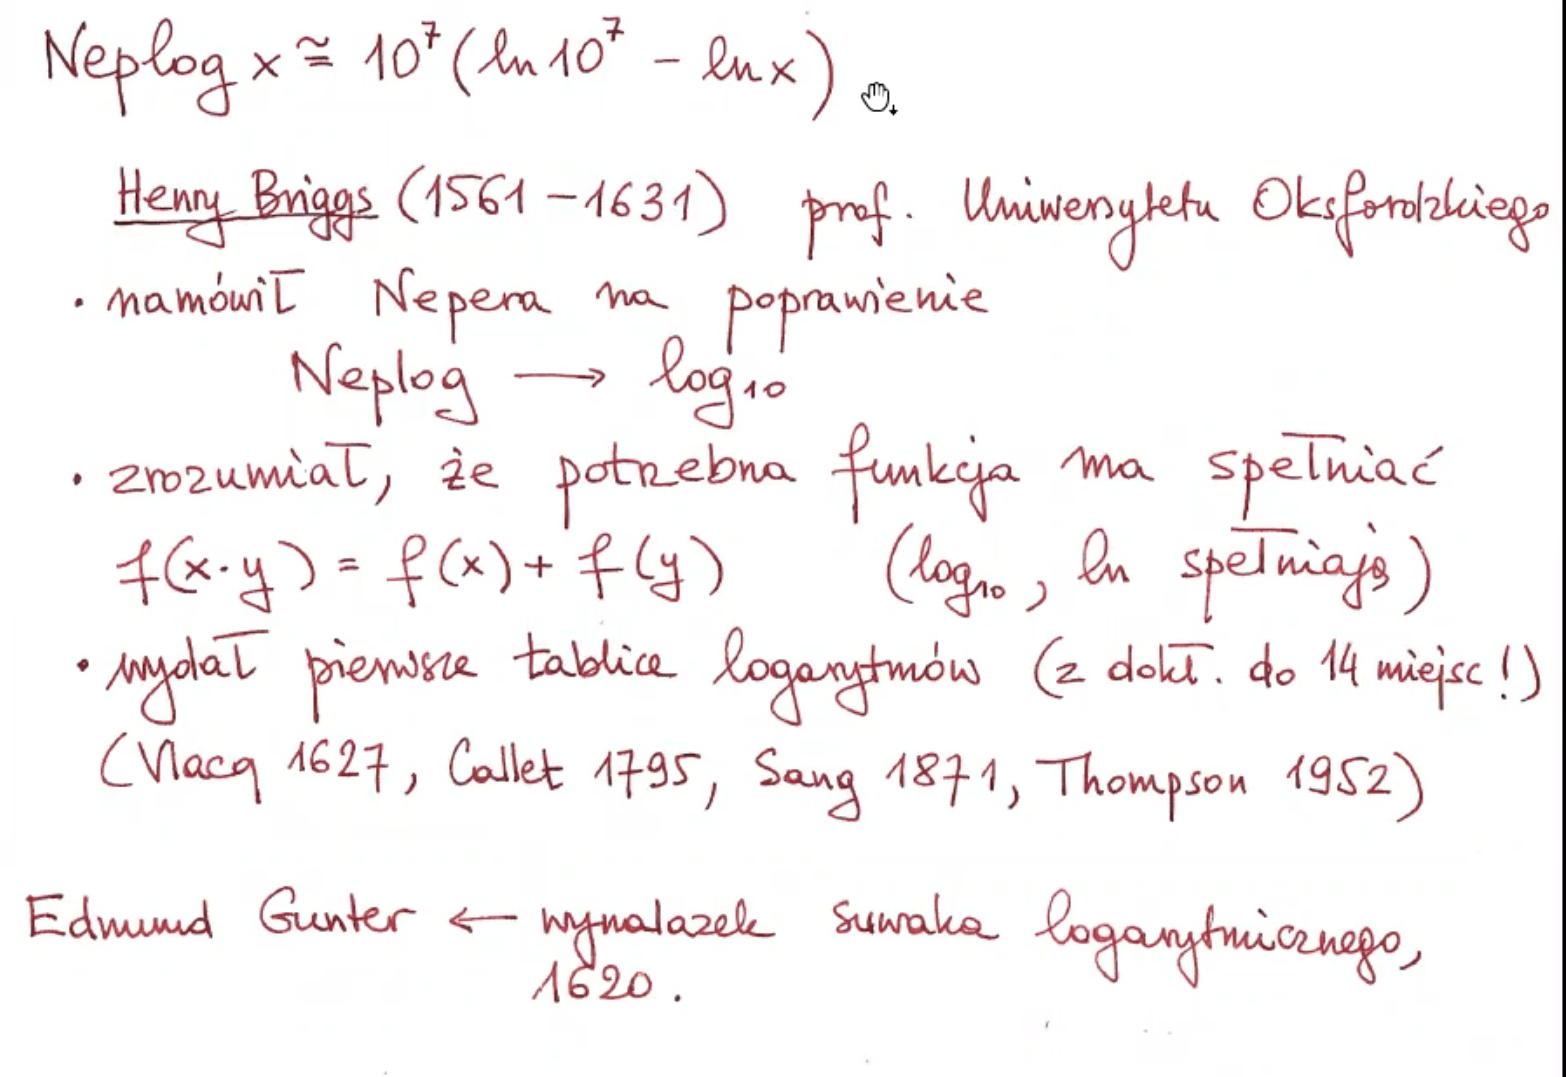 Neplog x ≅ 10⁷ (ln 10⁷ - ln x)
Henry Briggs (1561-1631) prof. Uniwersytetu Oksfordzkiego
• namówił Nepera na poprawienie
Neplog → log₁₀
• zrozumiał, że potrzebna funkcja ma spełniać
f(x·y) = f(x) + f(y) (log₁₀, ln spełniają)
• wydał pierwsze tablice logarytmów (z dokł. do 14 miejsc!)
(Vlacq 1627, Callet 1795, Sang 1871, Thompson 1952)
Edmund Gunter ← wynalazek suwaka logarytmicznego,
1620.